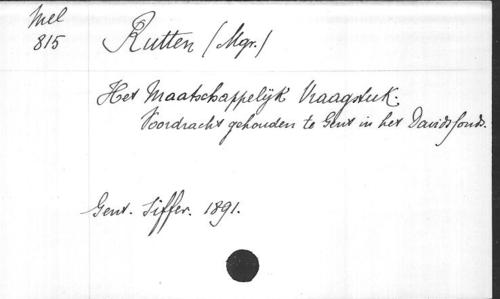 Mel
815
Rutten (Mgr.)
Het Maatschappelijk Vraagstuk.
Voordracht gehouden te Gent in het Davidsfonds.
Gent. Siffer. 1891.